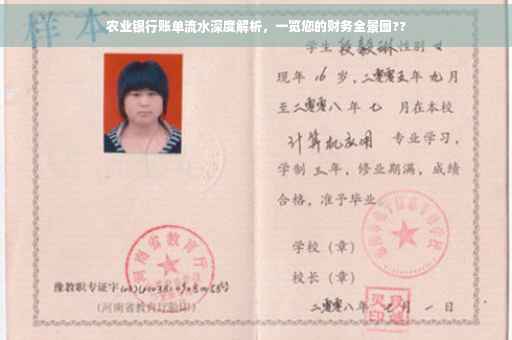 农业银行账单流水深度解析，一览您的财务全景图??
样本
学生段毅琳性别女
现年16岁，二零零五年九月
至二零零八年七 月在本校
计算机应用 专业学习，
学制三年，修业期满，成绩
合格，准予毕业。
学校（章）
校长（章）
二零零八年七月一日
河南省教育厅
豫教职专证字
(河南省教育厅验印)